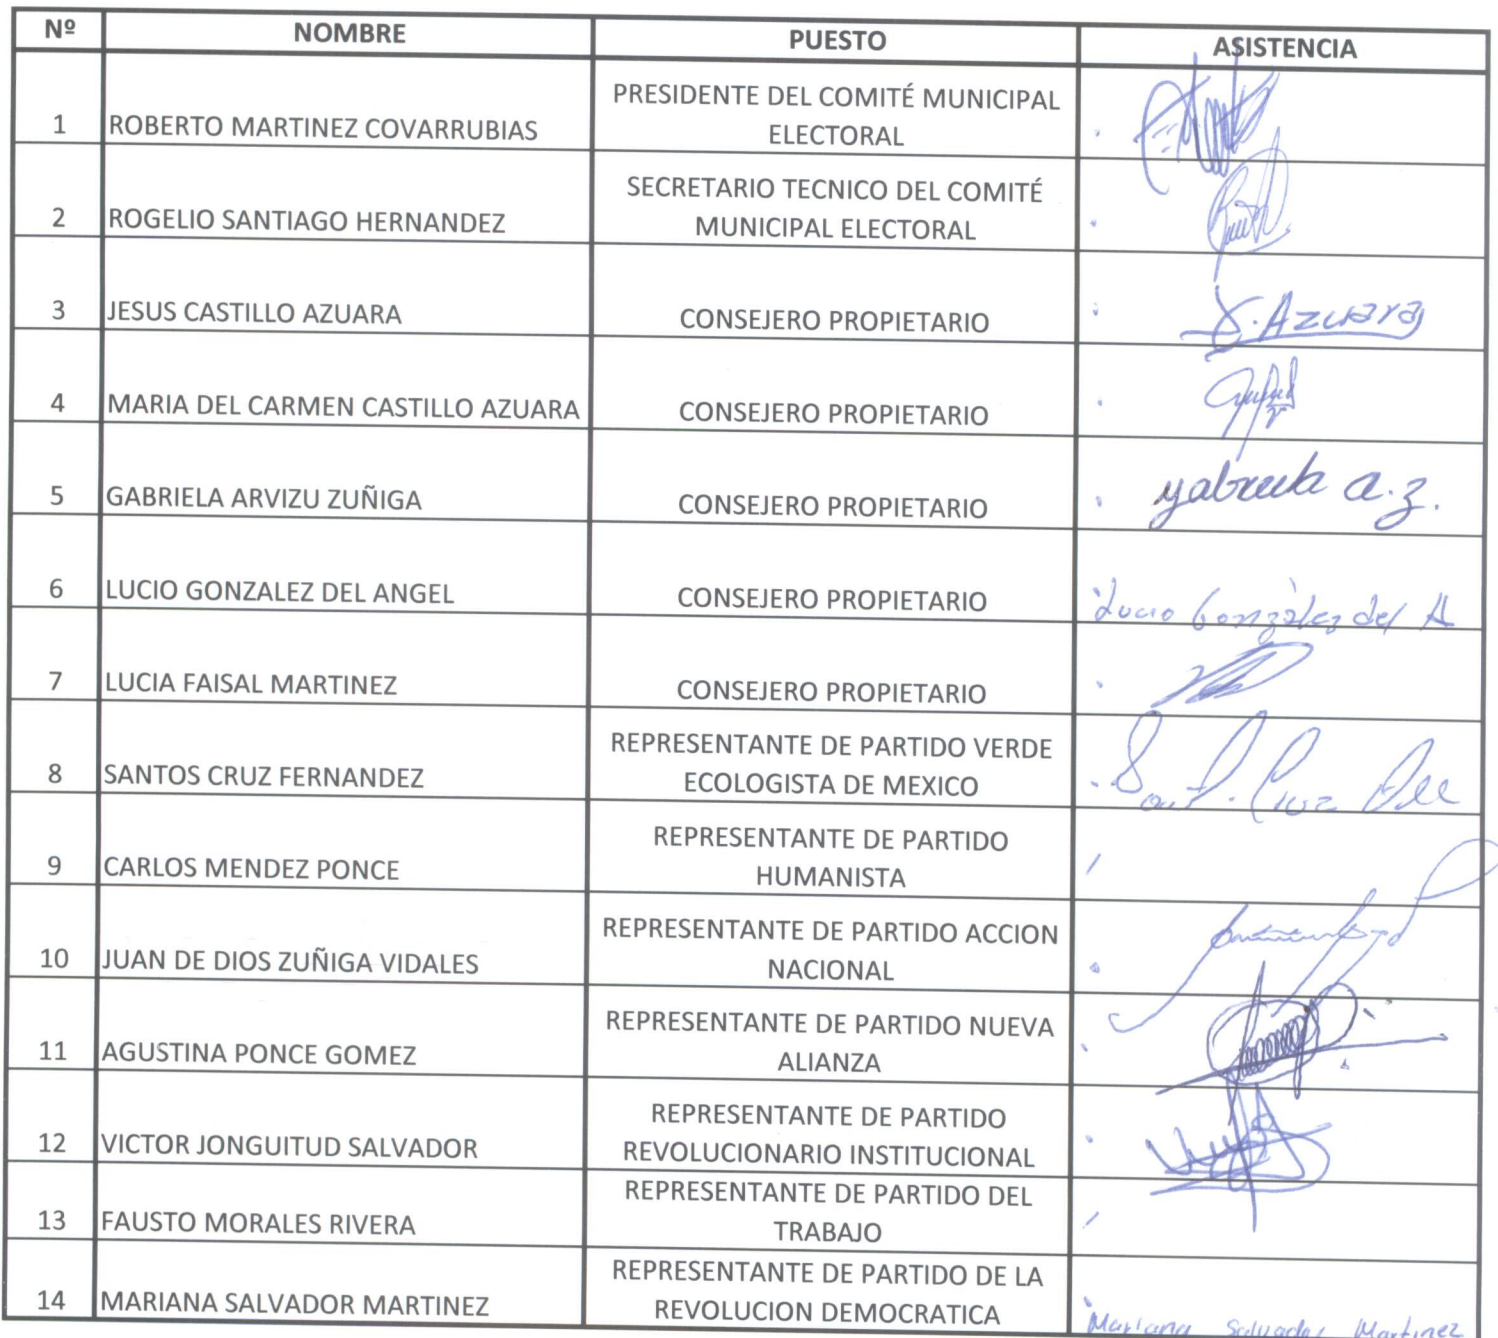 Nº NOMBRE PUESTO ASISTENCIA
1 ROBERTO MARTINEZ COVARRUBIAS PRESIDENTE DEL COMITÉ MUNICIPAL
ELECTORAL
2 ROGELIO SANTIAGO HERNANDEZ SECRETARIO TECNICO DEL COMITÉ
MUNICIPAL ELECTORAL
3 JESUS CASTILLO AZUARA CONSEJERO PROPIETARIO J. Azuara
4 MARIA DEL CARMEN CASTILLO AZUARA CONSEJERO PROPIETARIO
5 GABRIELA ARVIZU ZUÑIGA CONSEJERO PROPIETARIO gabriela a.z.
6 LUCIO GONZALEZ DEL ANGEL CONSEJERO PROPIETARIO Lucio González del A
7 LUCIA FAISAL MARTINEZ CONSEJERO PROPIETARIO
8 SANTOS CRUZ FERNANDEZ REPRESENTANTE DE PARTIDO VERDE
ECOLOGISTA DE MEXICO
9 CARLOS MENDEZ PONCE REPRESENTANTE DE PARTIDO
HUMANISTA
10 JUAN DE DIOS ZUÑIGA VIDALES REPRESENTANTE DE PARTIDO ACCION
NACIONAL
11 AGUSTINA PONCE GOMEZ REPRESENTANTE DE PARTIDO NUEVA
ALIANZA
12 VICTOR JONGUITUD SALVADOR REPRESENTANTE DE PARTIDO
REVOLUCIONARIO INSTITUCIONAL
13 FAUSTO MORALES RIVERA REPRESENTANTE DE PARTIDO DEL
TRABAJO
14 MARIANA SALVADOR MARTINEZ REPRESENTANTE DE PARTIDO DE LA
REVOLUCION DEMOCRATICA Mariana Salvador Martinez